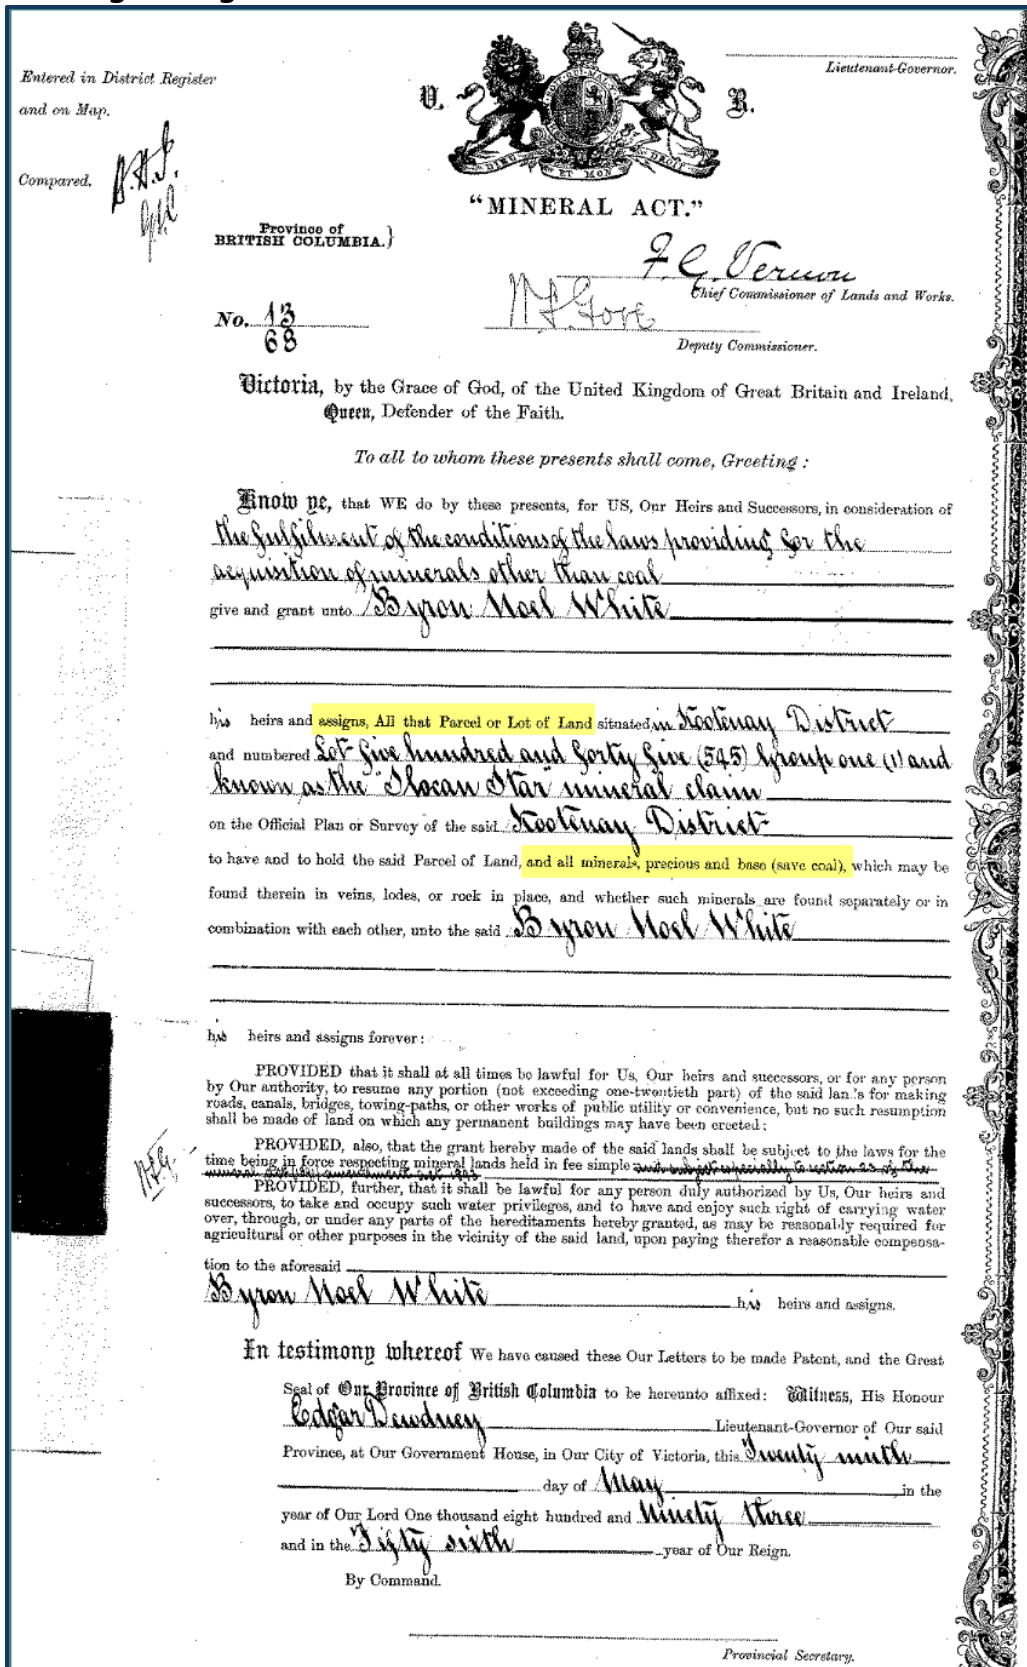 Lieutenant-Governor.
Entered in District Register
and on Map.
Compared.
V. R.
DIEU ET MON DROIT
"MINERAL ACT."
Province of
BRITISH COLUMBIA.}
F. G. Vernon
Chief Commissioner of Lands and Works.
No. 13
68
W. S. Gore
Deputy Commissioner.
Victoria, by the Grace of God, of the United Kingdom of Great Britain and Ireland,
Queen, Defender of the Faith.
To all to whom these presents shall come, Greeting:
Know ye, that WE do by these presents, for US, Our Heirs and Successors, in consideration of
the fulfilment of the conditions of the laws providing for the
acquisition of minerals other than coal
give and grant unto Byron Noel White
his heirs and assigns, All that Parcel or Lot of Land situated in Kootenay District
and numbered Lot five hundred and forty five (545) Group one (1) and
known as the "Slocan Star" mineral claim
on the Official Plan or Survey of the said Kootenay District
to have and to hold the said Parcel of Land, and all minerals, precious and base (save coal), which may be
found therein in veins, lodes, or rock in place, and whether such minerals are found separately or in
combination with each other, unto the said Byron Noel White
his heirs and assigns forever:
PROVIDED that it shall at all times be lawful for Us, Our heirs and successors, or for any person
by Our authority, to resume any portion (not exceeding one-twentieth part) of the said lands for making
roads, canals, bridges, towing-paths, or other works of public utility or convenience, but no such resumption
shall be made of land on which any permanent buildings may have been erected:
PROVIDED, also, that the grant hereby made of the said lands shall be subject to the laws for the
time being in force respecting mineral lands held in fee simple
PROVIDED, further, that it shall be lawful for any person duly authorized by Us, Our heirs and
successors, to take and occupy such water privileges, and to have and enjoy such right of carrying water
over, through, or under any parts of the hereditaments hereby granted, as may be reasonably required for
agricultural or other purposes in the vicinity of the said land, upon paying therefor a reasonable compensa-
tion to the aforesaid
Byron Noel White his heirs and assigns.
In testimony whereof We have caused these Our Letters to be made Patent, and the Great
Seal of Our Province of British Columbia to be hereunto affixed: Witness, His Honour
Edgar Dewdney Lieutenant-Governor of Our said
Province, at Our Government House, in Our City of Victoria, this Twenty ninth
day of May in the
year of Our Lord One thousand eight hundred and Ninety three
and in the Fifty sixth year of Our Reign.
By Command.
Provincial Secretary.